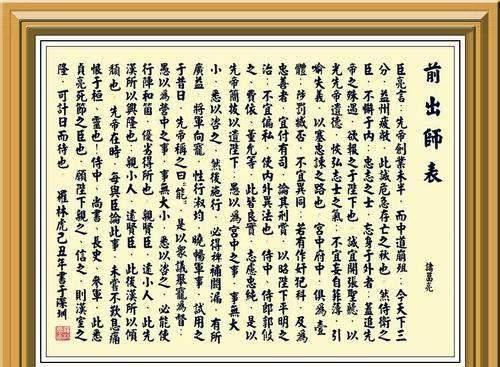 前出師表
諸葛亮
臣亮言：先帝創業未半，而中道崩殂；今天下三
分，益州疲敝，此誠危急存亡之秋也。然侍衛之
臣，不懈于內；忠志之士，忘身于外者：蓋追先
帝之殊遇，欲報之于陛下也。誠宜開張聖聽，以
光先帝遺德，恢弘志士之氣；不宜妄自菲薄，引
喻失義，以塞忠諫之路也。宮中府中，俱爲壹
體；陟罰臧否，不宜異同：若有作奸犯科，及爲
忠善者，宜付有司，論其刑賞，以昭陛下平明之
治；不宜偏私，使內外異法也。侍中、侍郎郭攸
之、費依、董允等，此皆良實，志慮忠純，是以
先帝簡拔以遺陛下：愚以爲宮中之事，事無大
小，悉以咨之，然後施行，必得裨補闕漏，有所
廣益。將軍向寵，性行淑均，曉暢軍事，試用之
于昔日，先帝稱之曰“能”，是以衆議舉寵爲督：
愚以爲營中之事，事無大小，悉以咨之，必能使
行陣和，優劣得所也。親賢臣，遠小人，此先
漢所以興隆也；親小人，遠賢臣，此後漢所以傾
頹也。先帝在時，每與臣論此事，未嘗不歎息痛
恨于桓、靈也！侍中、尚書、長史、參軍，此悉
貞亮死節之臣也，願陛下親之、信之，則漢室之
隆，可計日而待也。 羅林虎己丑年書于深圳